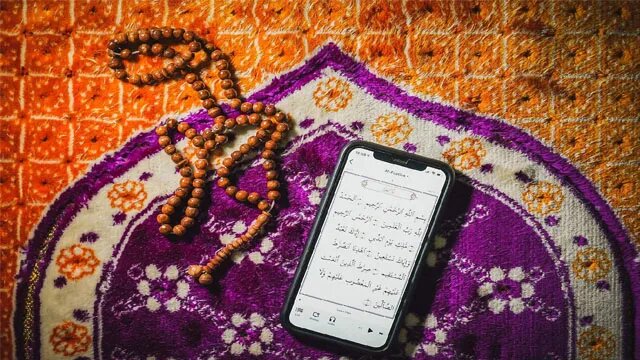 Al-Faatiha
بِسْمِ اللَّهِ الرَّحْمَٰنِ الرَّحِيمِ ۝ الْحَمْدُ
لِلَّهِ رَبِّ الْعَالَمِينَ ۝ الرَّحْمَٰنِ الرَّحِيمِ
۝ مَالِكِ يَوْمِ الدِّينِ ۝ إِيَّاكَ نَعْبُدُ
وَإِيَّاكَ نَسْتَعِينُ ۝ اهْدِنَا الصِّرَاطَ
الْمُسْتَقِيمَ ۝ صِرَاطَ الَّذِينَ أَنْعَمْتَ
عَلَيْهِمْ غَيْرِ الْمَغْضُوبِ عَلَيْهِمْ وَلَا
الضَّالِّينَ ۝